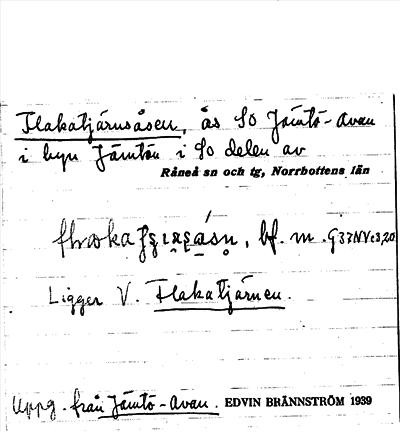 Flakatjärnsåsen, ås SO Jämtö-Avan
i byn Jämtön i SO delen av
Råneå sn och tg, Norrbottens län
bf. m.
Ligger V. Flakatjärnen.
Uppg. från Jämtö-Avan. EDVIN BRÄNNSTRÖM 1939